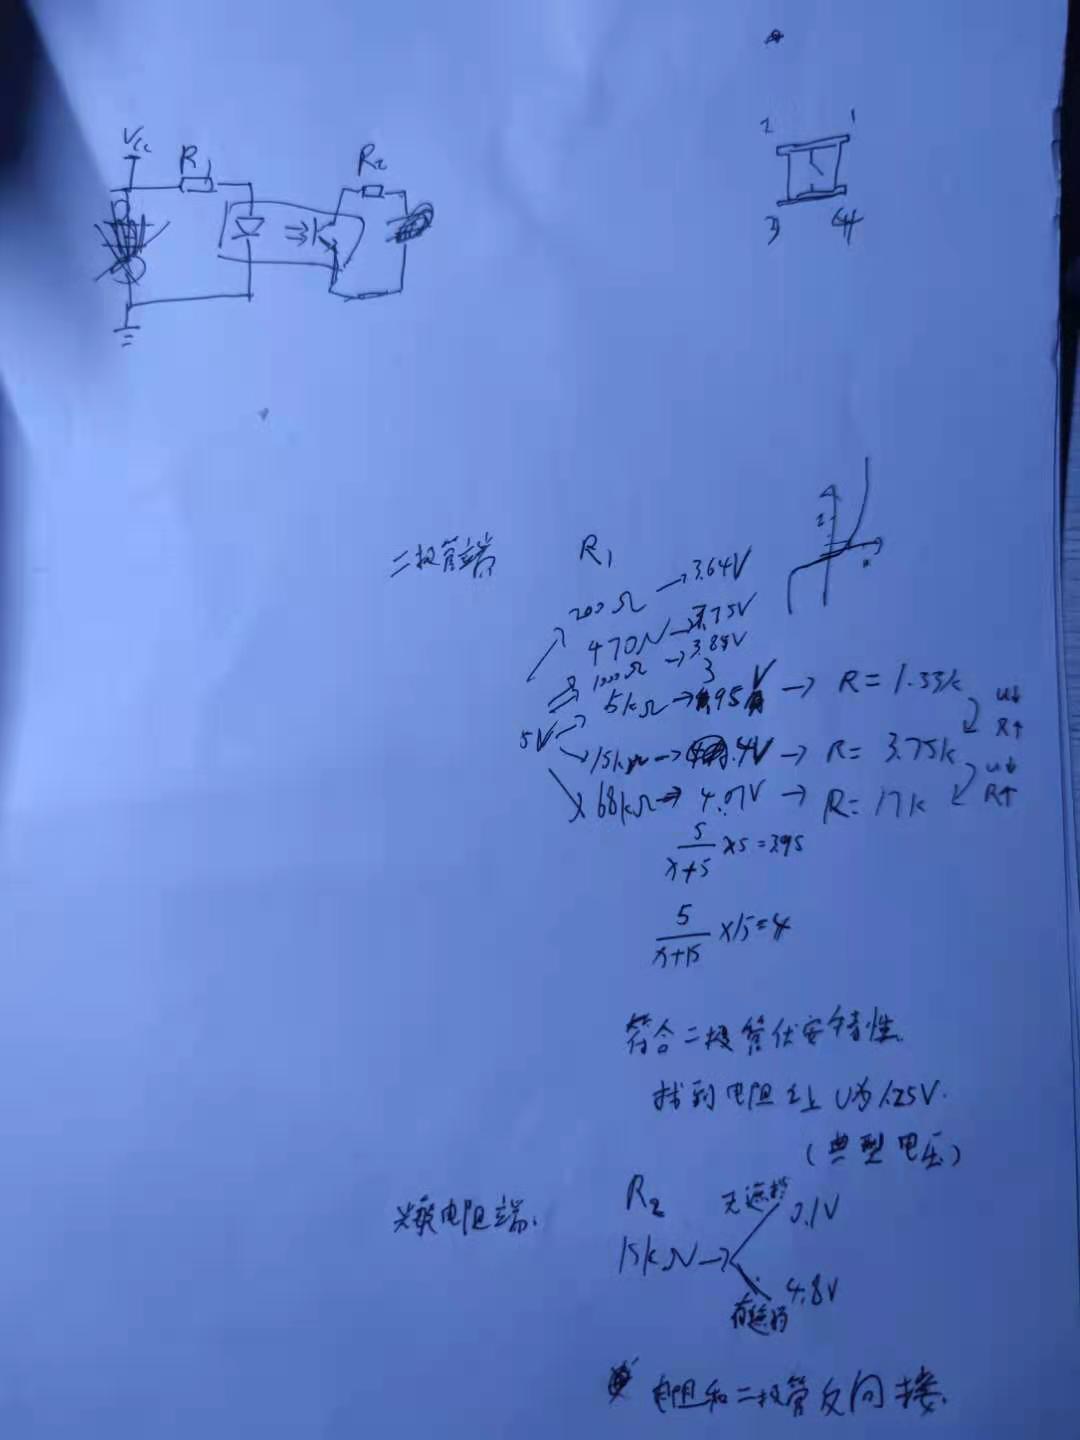 Vcc
R1
R2
2 1
3 4
二极管端
R1
I
200Ω → 3.64V
470Ω → 3.75V
1000Ω → 3.85V
5kΩ → 3.95V → R = 1.33k
U↓
R↑
5V
15kΩ → 4V → R = 3.75k
U↓
R↑
68kΩ → 4.07V → R = 17k
5/(x+5) ×5 = 3.95
5/(x+15) ×15 = 4
符合二极管伏安特性.
找到电阻之上 U为1.25V.
(典型电压)
光敏电阻端.
R2
无遮挡 0.1V
15kΩ →
有遮挡 4.8V
电阻和二极管反向接.